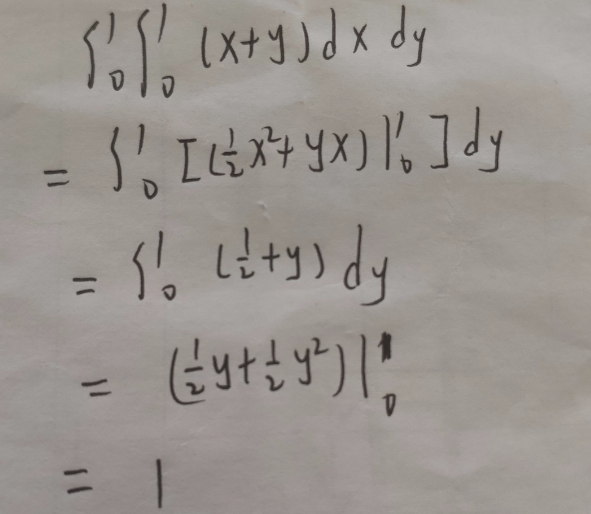 ∫₀¹∫₀¹ (x+y)dx dy
= ∫₀¹ [(½x²+yx)|₀¹]dy
= ∫₀¹ (½+y)dy
= (½y+½y²)|₀¹
= 1